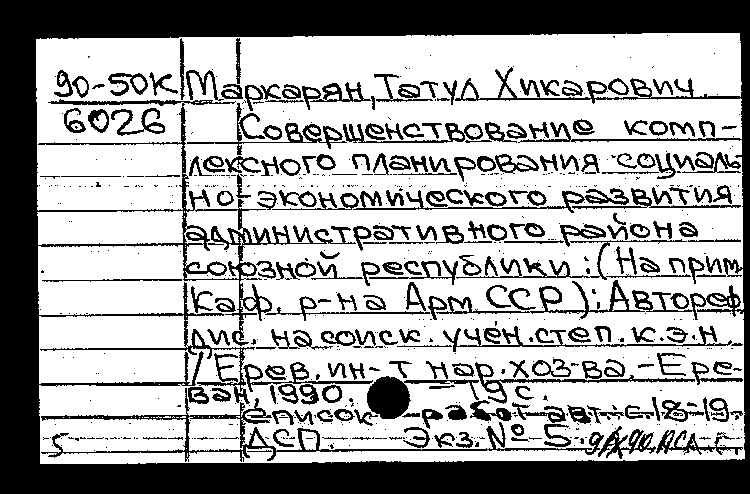 90-50К Маркарян, Татул Хикарович.
6026 Совершенствование комп-
лексного планирования социаль
но-экономического развития
административного района
союзной республики : (На прим
Каф. р-на Арм ССР) : Автореф
дис. на соиск. учен. степ. к.э.н
/ Ерев. ин-т нар. хоз-ва. - Ере-
ван, 1990. - 19 с.
Список работ авт.: с. 18-19.
5 ДСП. Экз. № 5.